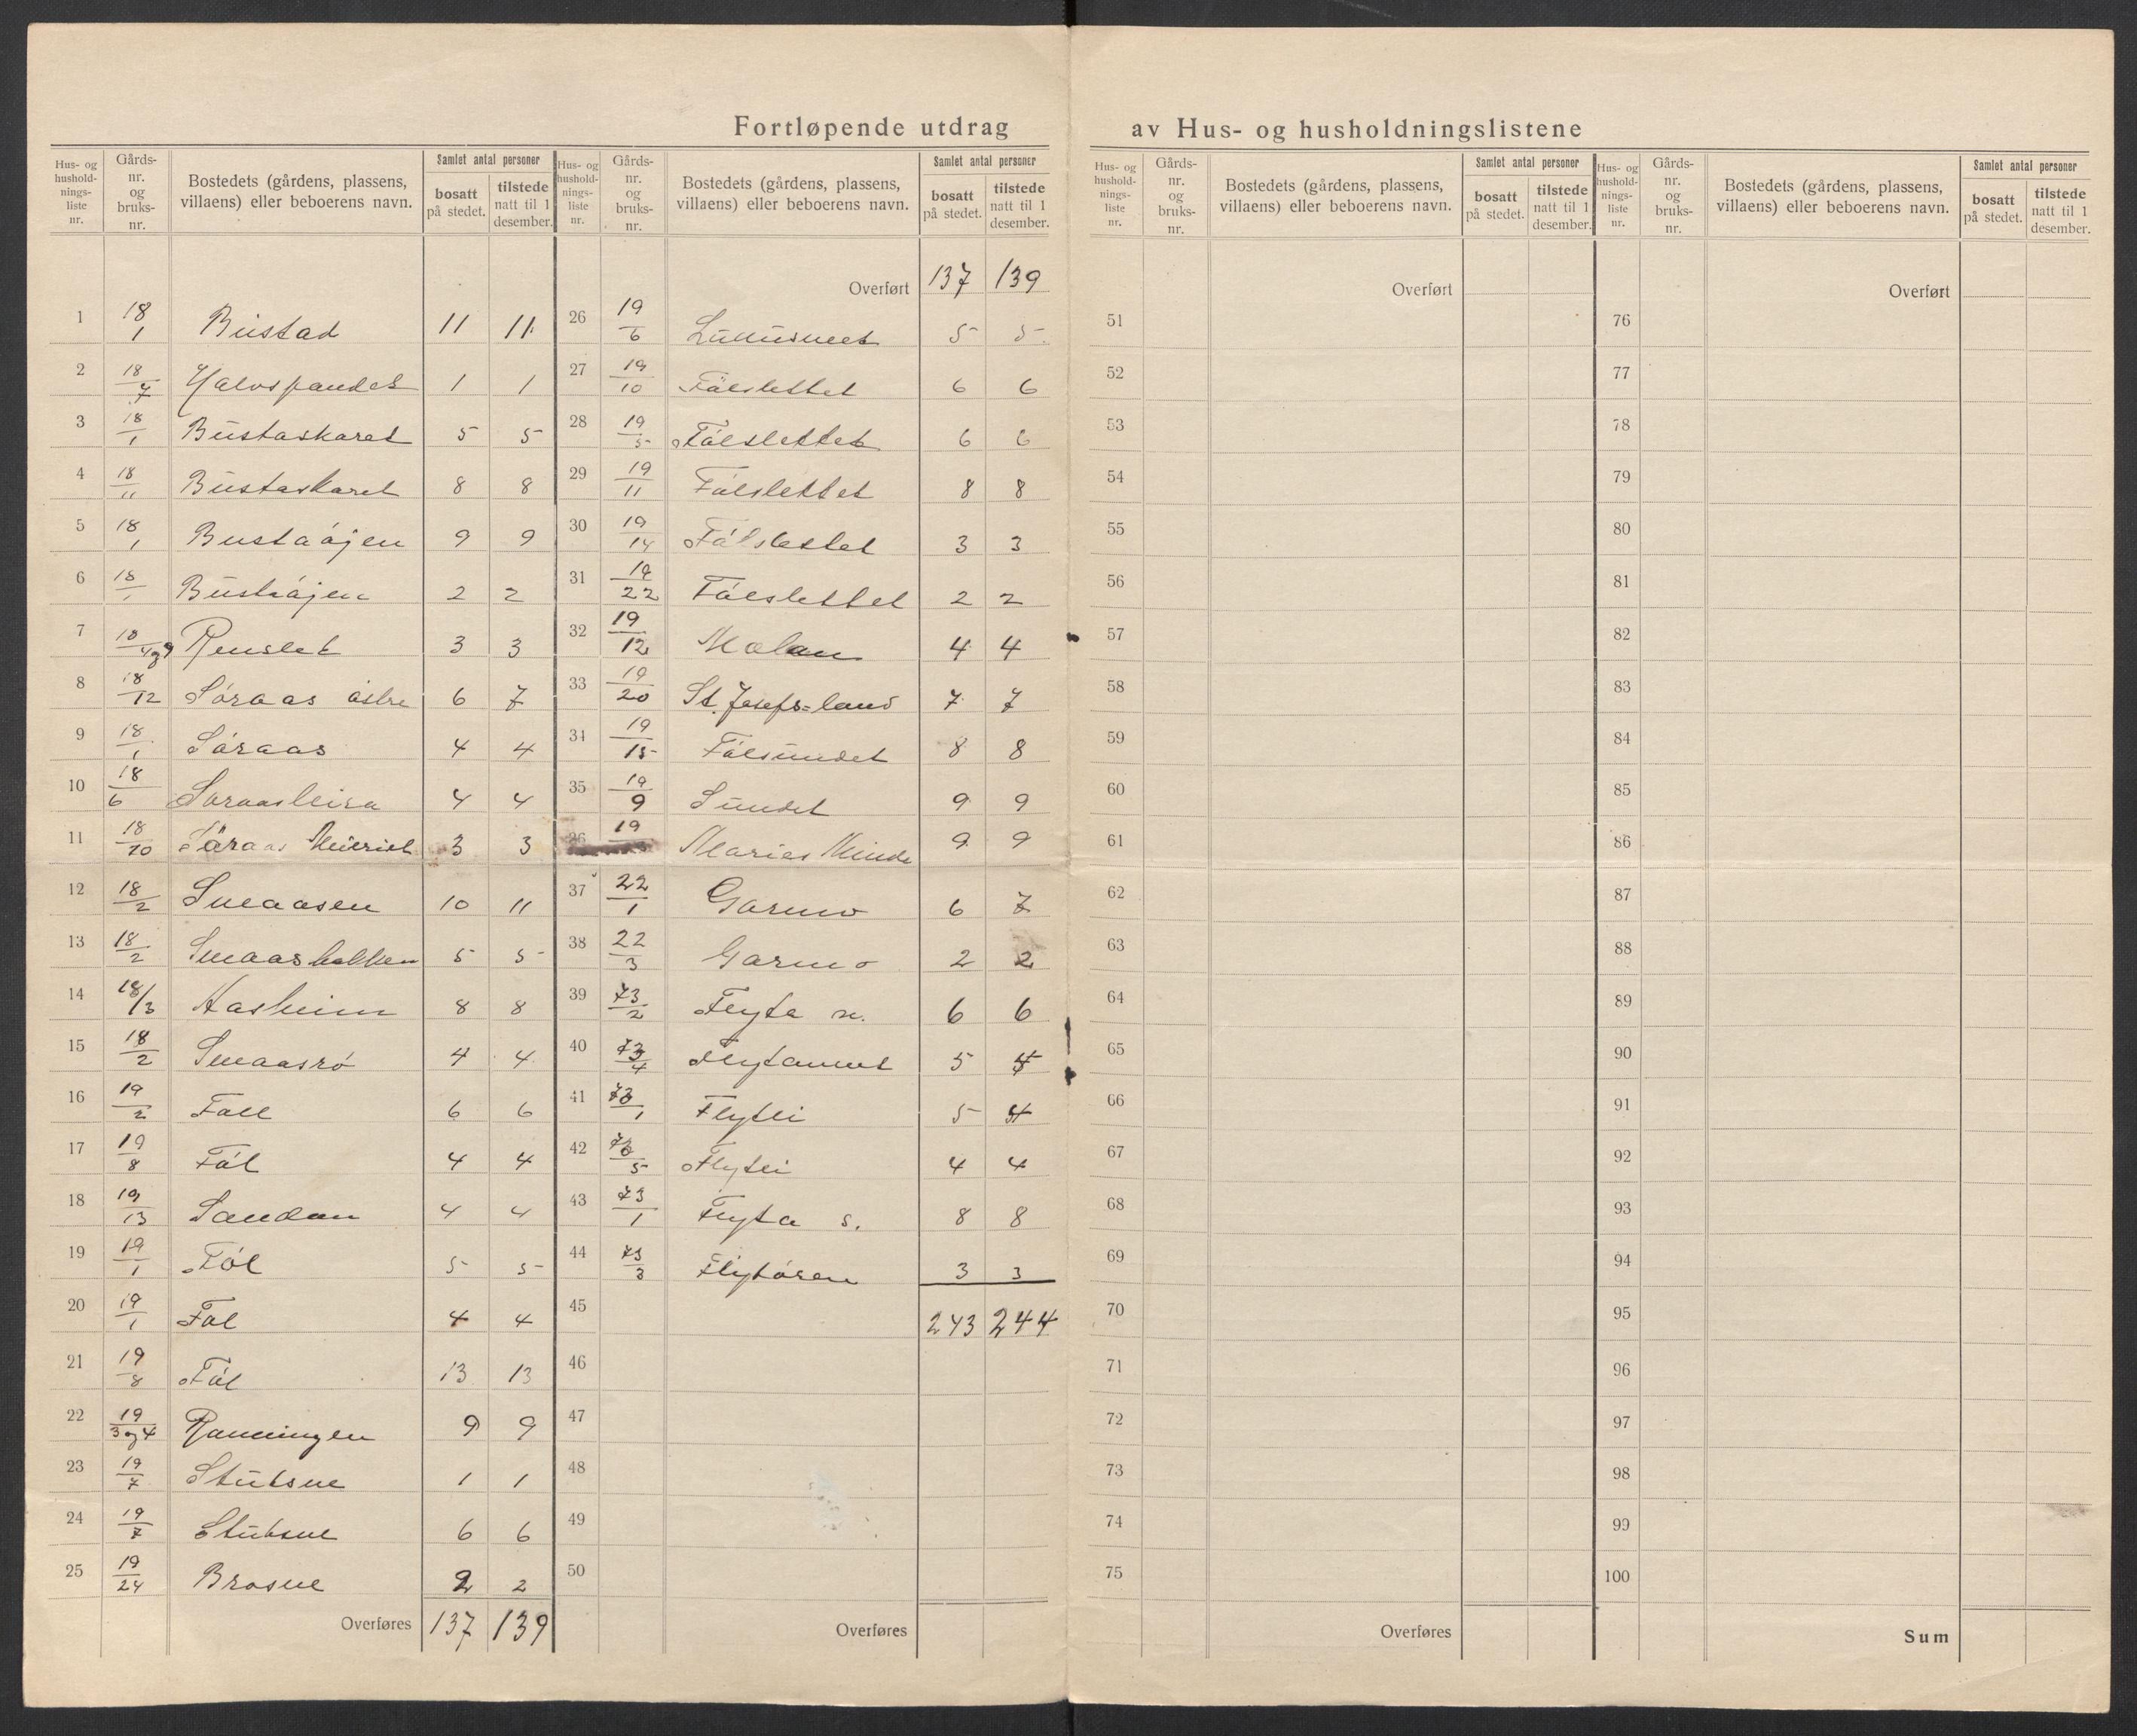 Fortløpende utdrag av Hus- og husholdningslistene
Hus- og husholdnings-liste nr. | Gårds-nr. og bruks-nr. | Bostedets (gårdens, plassens, villaens) eller beboerens navn. | Samlet antal personer | bosatt på stedet. | tilstede natt til 1 desember.
1 18/1 Bustad 11 11
2 18/7 1 1
3 18/1 Bustaskaret 5 5
4 18/11 Bustaskaret 8 8
5 18/1 Bustaöjen 9 9
6 18/1 Bustaöjen 2 2
7 18/4og9 Renslet 3 3
8 18/12 Söraas östre 6 7
9 18/1 Söraas 4 4
10 18/6 Söraasleira 4 4
11 18/10 Söraas Meieriet 3 3
12 18/2 Smaasen 10 11
13 18/2 Smaasbakken 5 5
14 18/3 Aasheim 8 8
15 18/2 Smaasrö 4 4
16 19/2 Föll 6 6
17 19/8 Föl 4 4
18 19/13 Sandan 4 4
19 19/1 Föl 5 5
20 19/1 Föl 4 4
21 19/8 Föl 13 13
22 19/3og4 Rönningen 9 9
23 19/7 Stubsve 1 1
24 19/7 Stubsve 6 6
25 19/24 Brosve 2 2
Overføres 137 139
Hus- og husholdnings-liste nr. | Gårds-nr. og bruks-nr. | Bostedets (gårdens, plassens, villaens) eller beboerens navn. | Samlet antal personer | bosatt på stedet. | tilstede natt til 1 desember.
Overført 137 139
26 19/6 5 5
27 19/10 Fölslettet 6 6
28 19/5 Fölslettet 6 6
29 19/11 Fölslettet 8 8
30 19/14 Fölslettet 3 3
31 19/22 Fölslettet 2 2
32 19/12 Molan 4 4
33 19/20 St. Josefs=land 7 7
34 19/15 Fölsundet 8 8
35 19/9 Sundet 9 9
36 19 Maries Minde 9 9
37 22/1 Garmo 6 7
38 22/3 Garmo 2 2
39 73/2 Flyta n. 6 6
40 73/4 Flytamot 5
41 73/1 Flytli 5 4
42 73/5 Flytli 4 4
43 73/1 Flyta s. 8 8
44 73/3 Flytåsen 3 3
45 243 244
46
47
48
49
50
Overføres
Hus- og husholdnings-liste nr. | Gårds-nr. og bruks-nr. | Bostedets (gårdens, plassens, villaens) eller beboerens navn. | Samlet antal personer | bosatt på stedet. | tilstede natt til 1 desember.
Overført
51
52
53
54
55
56
57
58
59
60
61
62
63
64
65
66
67
68
69
70
71
72
73
74
75
Overføres
Hus- og husholdnings-liste nr. | Gårds-nr. og bruks-nr. | Bostedets (gårdens, plassens, villaens) eller beboerens navn. | Samlet antal personer | bosatt på stedet. | tilstede natt til 1 desember.
Overført
76
77
78
79
80
81
82
83
84
85
86
87
88
89
90
91
92
93
94
95
96
97
98
99
100
Sum